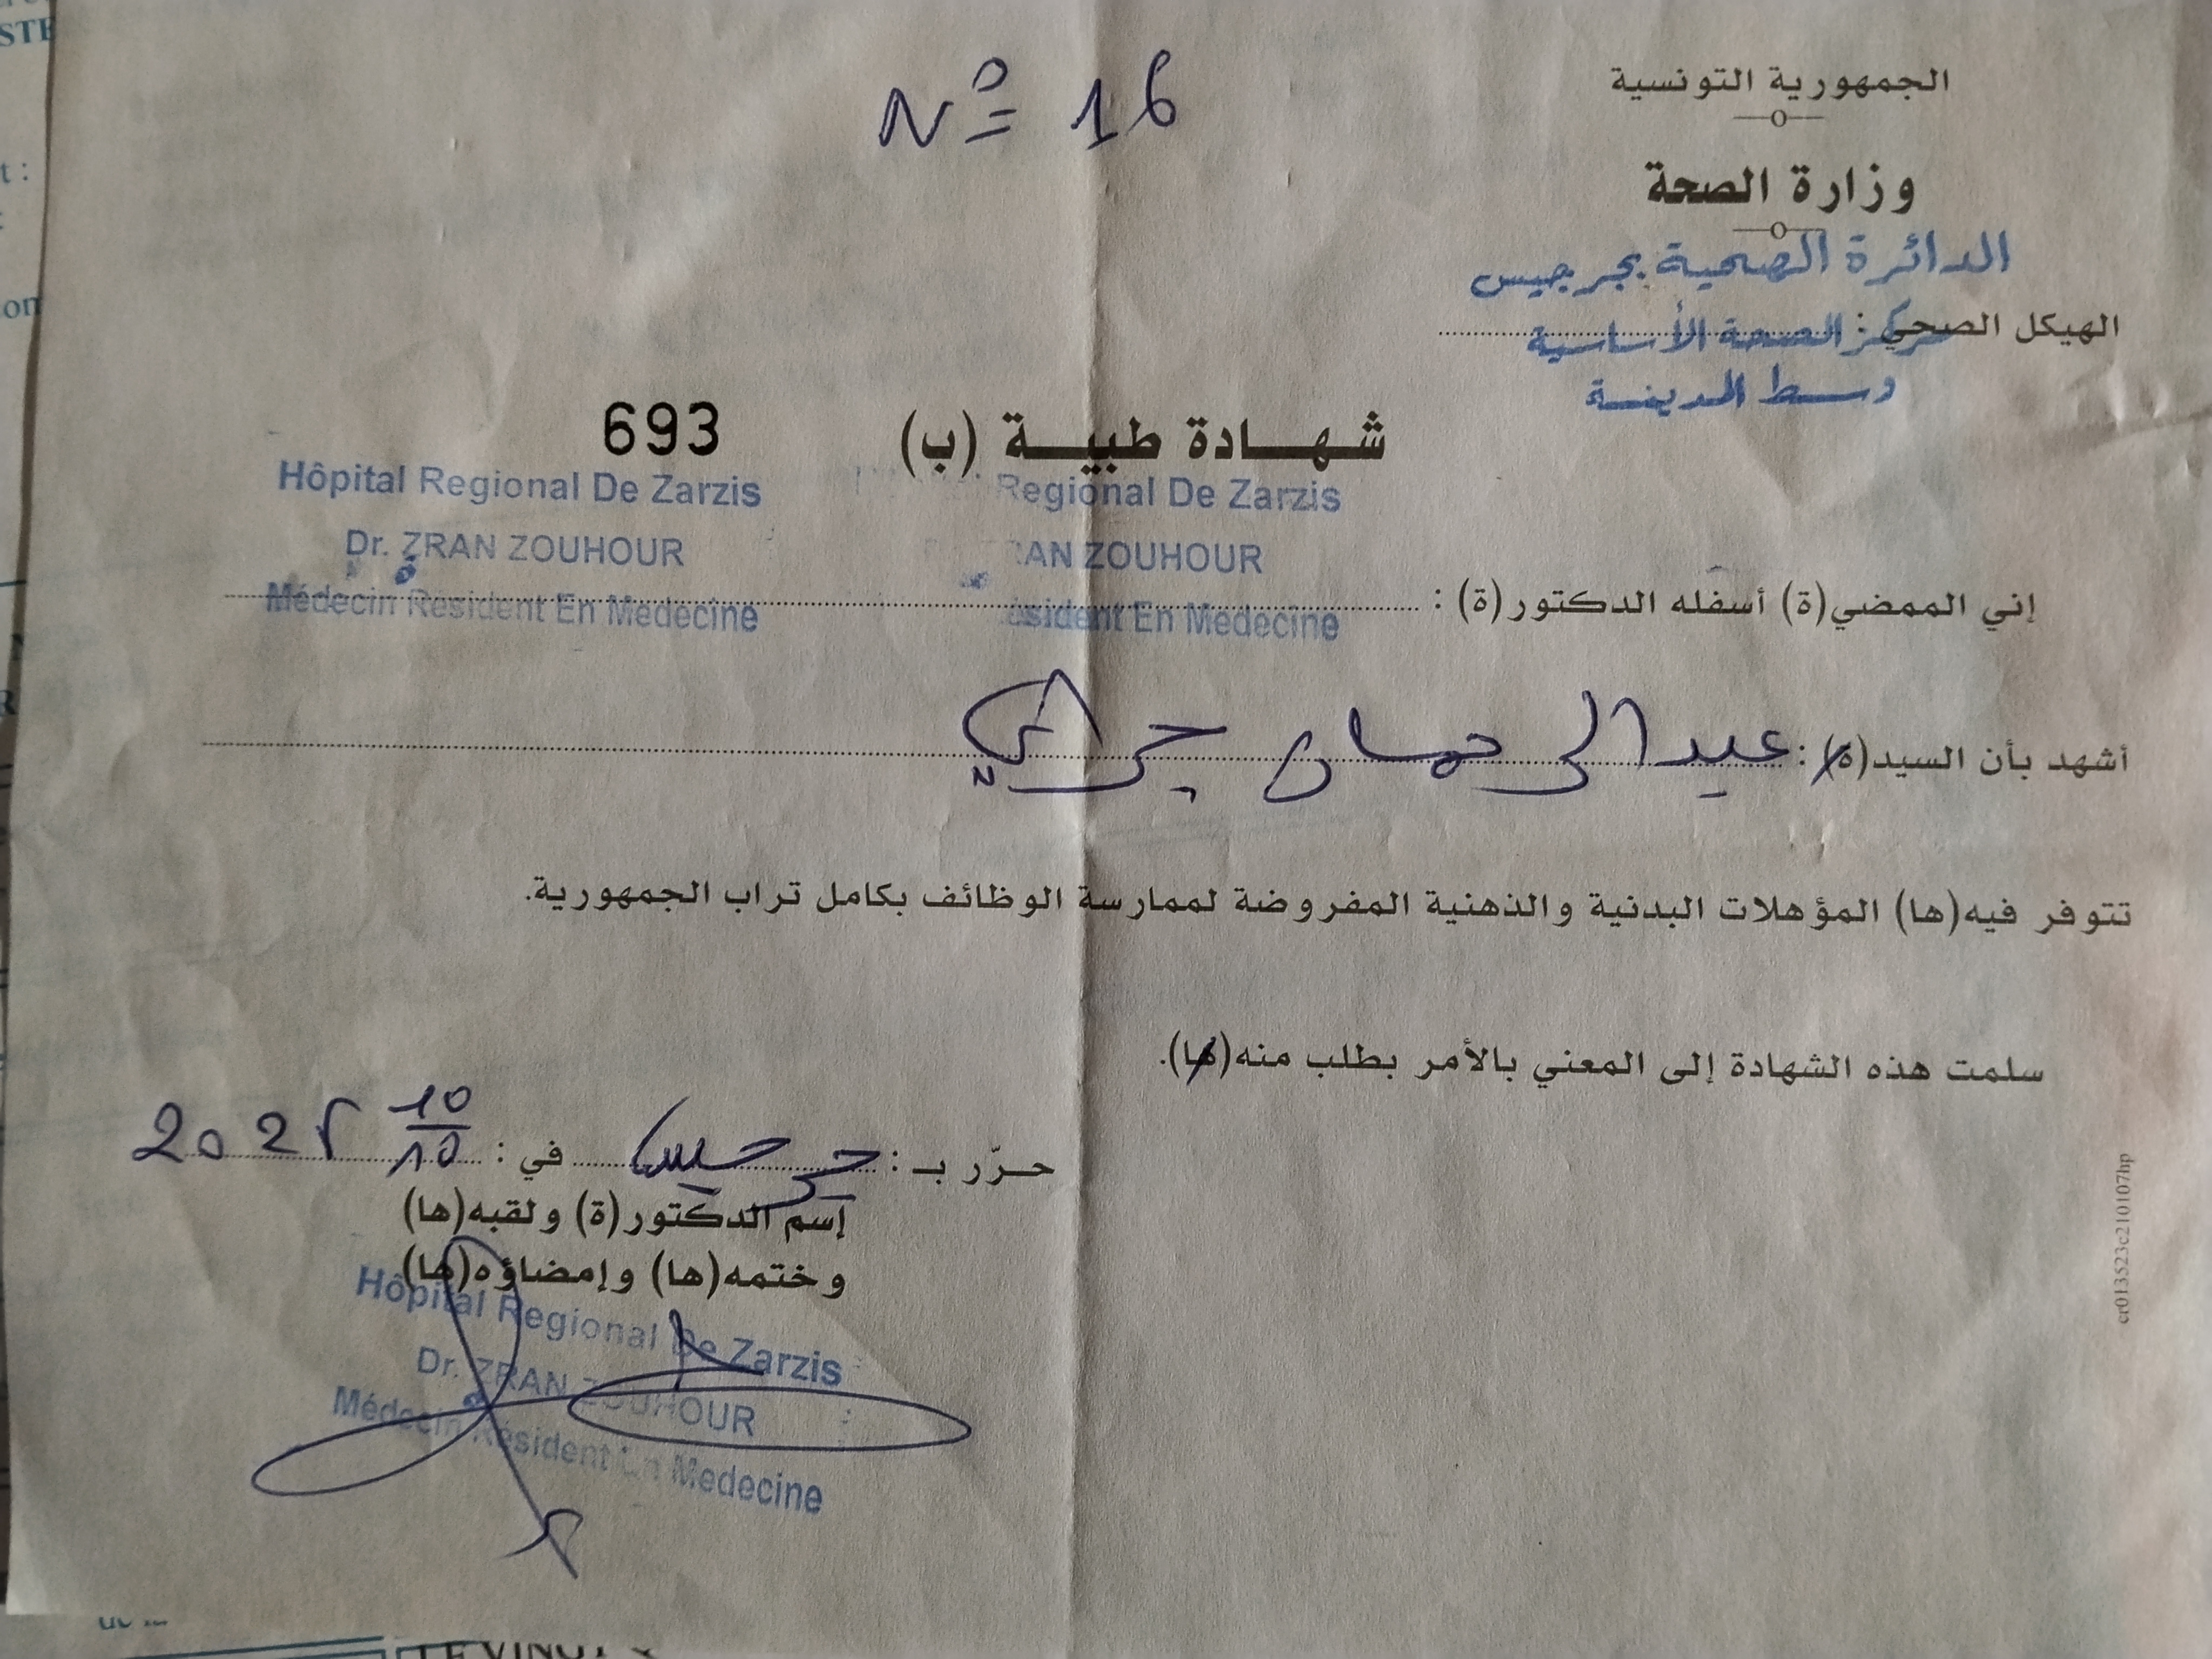 N° 16
الجمهورية التونسية
وزارة الصحة
الدائرة الصحية بجرجيس
الهيكل الصحي :
مركز الصحة الأساسية
وسط المدينة
شهادة طبية (ب)
693
Hôpital Regional De Zarzis
Dr. ZRAN ZOUHOUR
Médecin Résident En Medecine
Regional De Zarzis
ZOUHOUR
En Medecine
إني الممضي(ة) أسفله الدكتور(ة) :
أشهد بأن السيد(ة) : عبد الرحمان
تتوفر فيه(ها) المؤهلات البدنية والذهنية المفروضة لممارسة الوظائف بكامل تراب الجمهورية.
سلمت هذه الشهادة إلى المعني بالأمر بطلب منه(ها).
حرّر بـ : جرجيس في : 10/10
إسم الدكتور(ة) ولقبه(ها)
وختمه(ها) وإمضاؤه(ها)
Hôpital Regional De Zarzis
Dr. ZRAN ZOUHOUR
Médecin Résident En Medecine
cr013523c210107hp